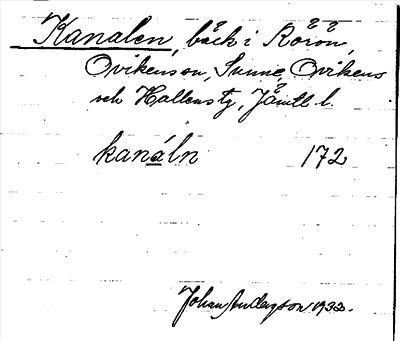 Kanalen, bäck i Rörön,
Ovikensön, Sunne, Ovikens
och Hallens tg, Jämtl. l.
kanáln 172
Johan Andersson 1933.